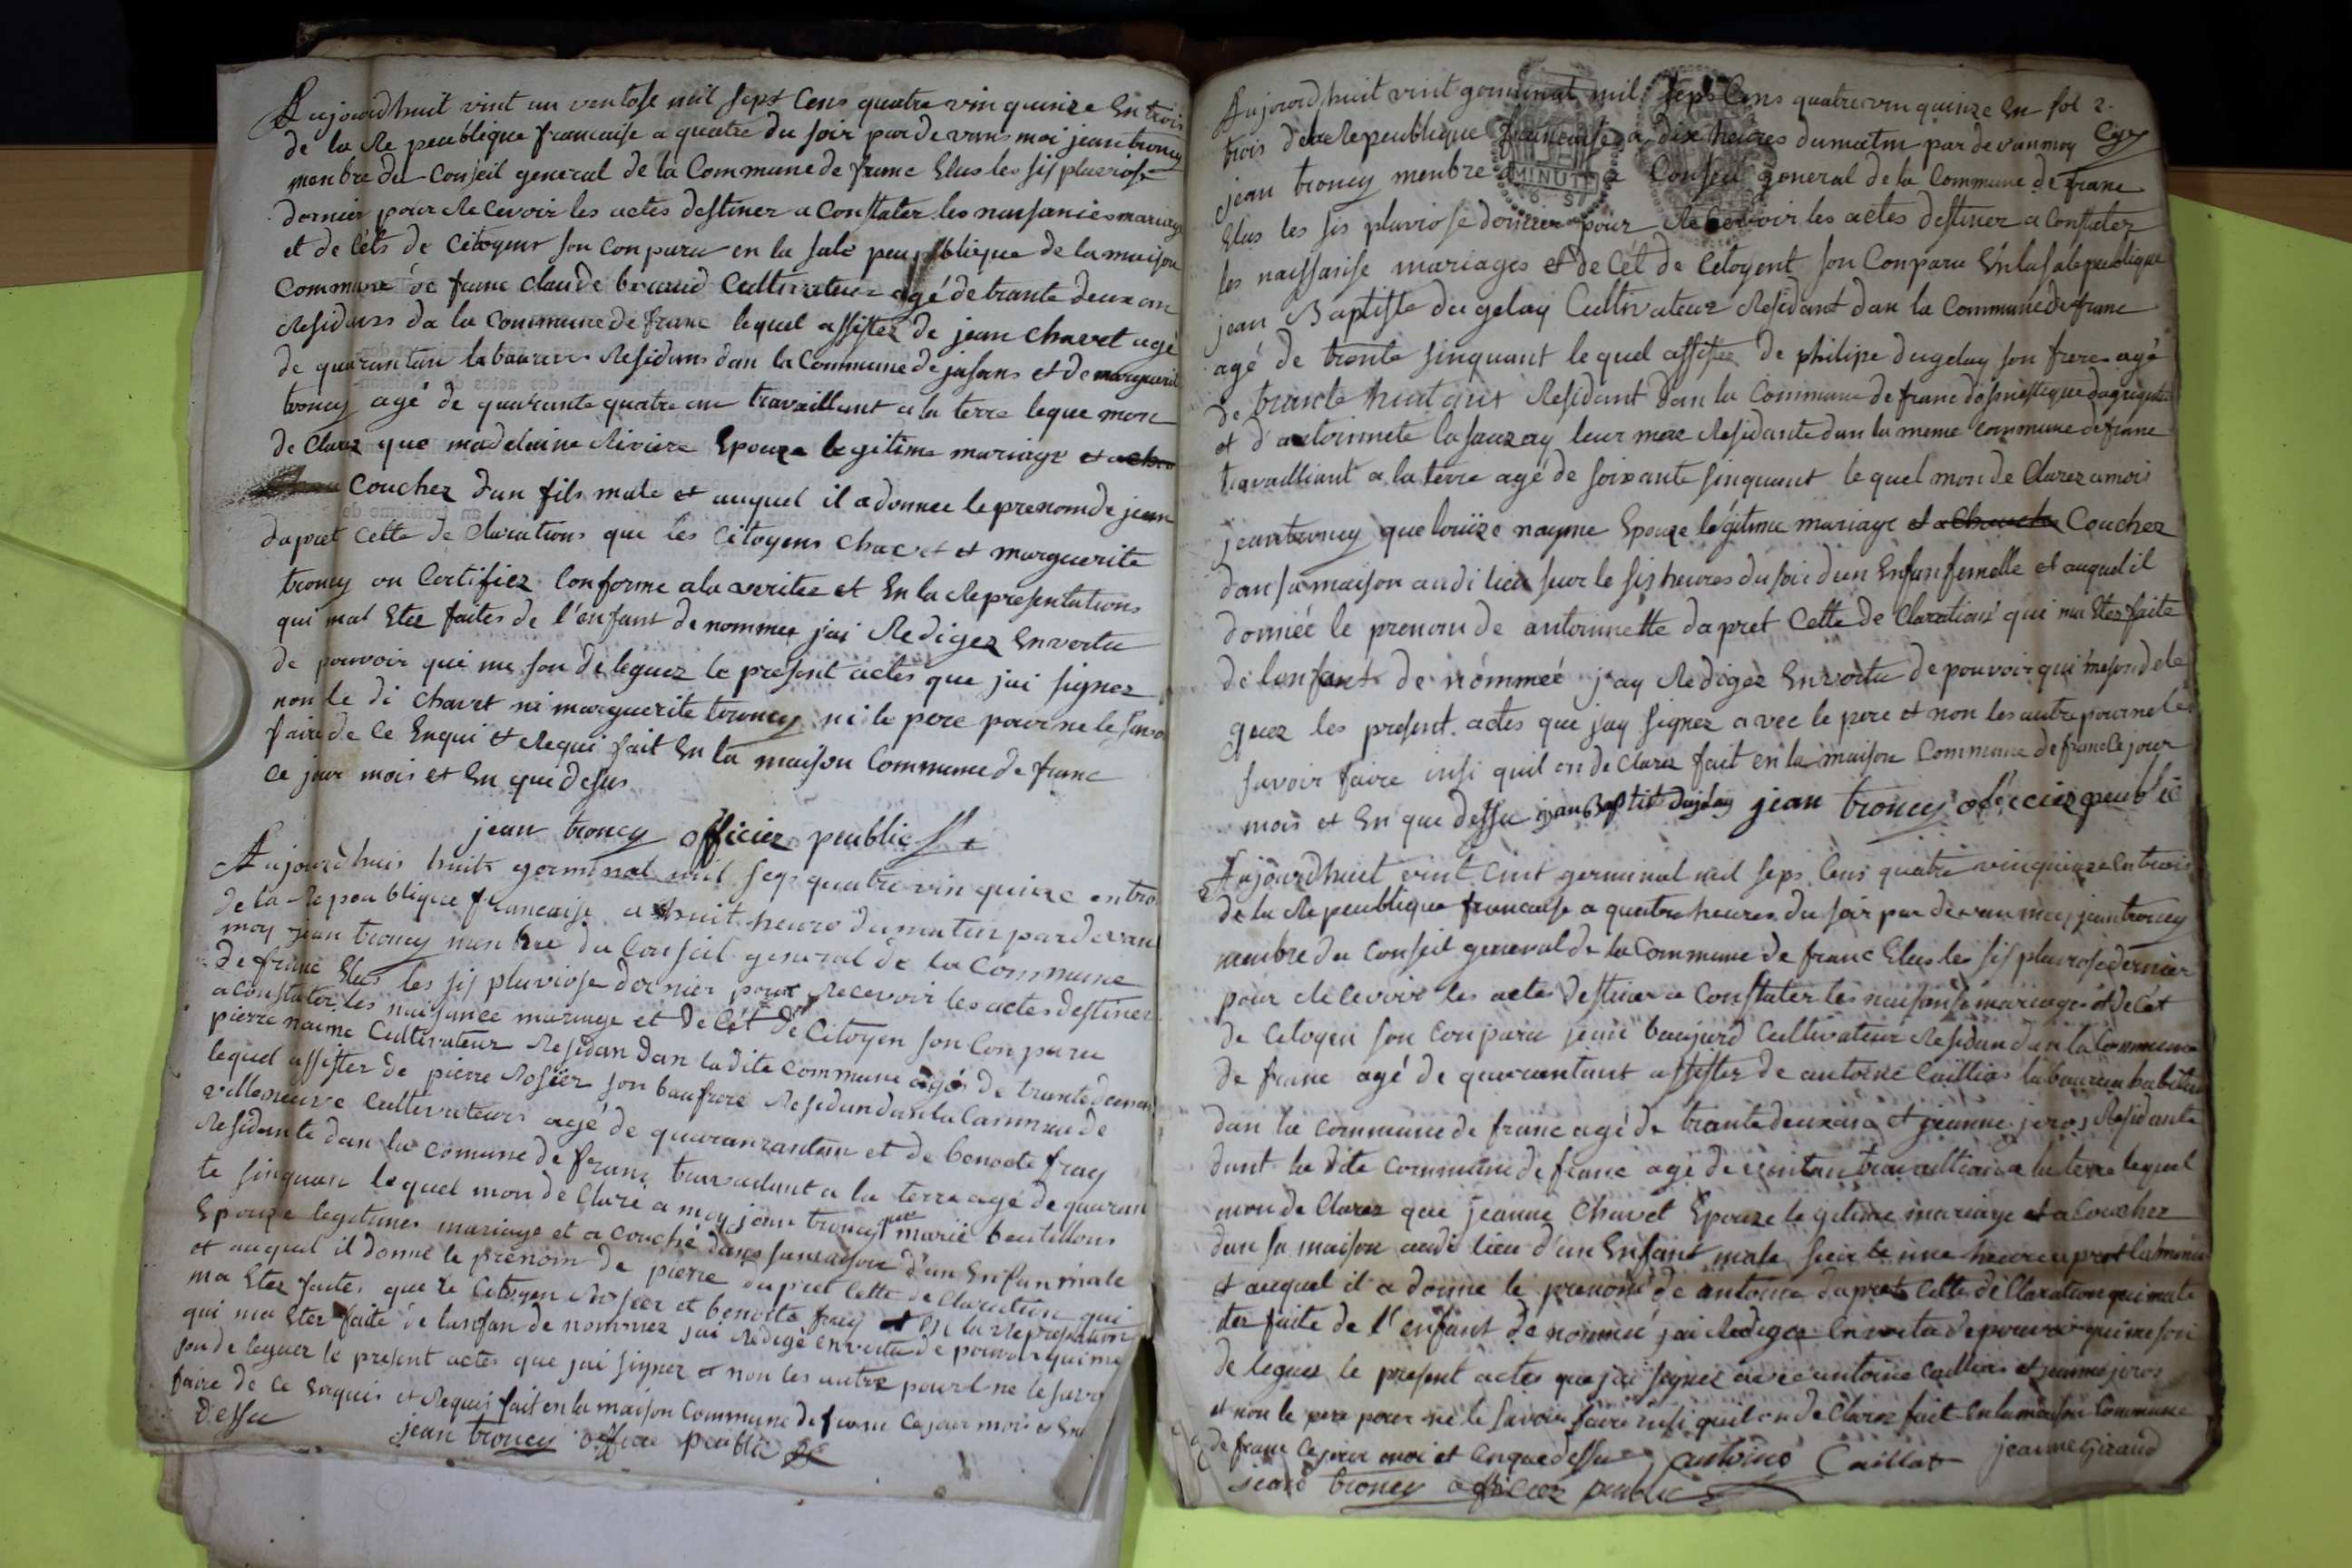 Aujourdhuit vint un ventose mil sept Cens quatre vin quinze En trois
de la Re peublique francaise a quatre du soir par de vans moi jean troncy
menbre du Conseil general de la Commune de franc Elus les sis pluviose
dernier pour Re cevoir les actes destinez a Constater les naisances mariage
et de Cets de Citoyens son conparu en la sale peublique de la maison
Commune de franc Claude braud Cultivateur agé de trante deux an
Residans da la Commune de franc lequel assistez de jean Chavet agé
de quarantan labaurer Residans dan la Commune de jasans et de marguerite
troncy agé de quarante quatre an travaillant a la terre leque mon
de Clarez que madelaine Riviere Epouze legitime mariage
Couchez dun fils male et auquel il a donnee le prenom de jean
dapret Cette de Clarations que les Citoyens Chavet et marguerite
troncy on Certifiez Conforme a la veritee et En la Representations
qui mat Etez faites de l'enfant de nommer jai Redigez En vertu
de pouvoir qui me son de leguez le present actes que jai signez
non le di Chavet ni marguerite troncy ni le pere pour ne le savo
faire de Ce Enqui et Requi fait En la maison Commune de franc
Ce jour mois et En que desus
jean troncy officiez peublic
Aujourdhuis huit germinal mil sep quatre vin quinze en tro
de la Re peublique francaise a huit heure du matin par de van
moy jean troncy menbre du Conseil general de la Commune
de franc Elus les sis pluviose dernier pour Recevoir les actes destinez
a Constater les naisance mariage et de Cét de Citoyen son Conparu
pierre naime Cultivateur Residan dan la dite Commune agé de trante deux an
lequel assister de pierre Rosier son baufrere Residan dan la Commune de
villeneuve Cultivateurs agé de quaranrantan et de benoote fray
Residante dan la Comune de franc travaidant a la terre agé de quaran
te sinquan lequel mon de Claré a moy jean troncy que marie beutillons
Epouze legetimes mariage et a Couché dans sa maison d'un Enfan male
et auquel il donné le prenom de pierre dapret Cette de Claration qui
ma Etez faites que le Citoyen Rosier et benoite fray et En la Represation
qui ma Etez faite de lanfan de nommez jai Redigé en vertu de pouvoir qui me
son de leguez le present actes que jai signez et non les autre pour ne le savo
faire de Ce Enquis et Requi fait en la maison Commune de franc Ce jour mois et En
dessu
jean troncy officie peublic
Aujourdhuit vint germinat mil Sept Cens quatre vin quinze En fol 2.
trois de la Re peublique francaise a dix heures du matin par de van moy
jean troncy menbre Conseil general de la Commune de franc
MINUTE
Elus les sis pluviose dernier pour Recevoir les actes destinez a Constater
les naissanse mariages et de Cét de Citoyent son Conparu En la sale peublique
jean Baptiste dugelay Cultivateur Residant dan la Commune de franc
agé de trente sinquant le quel assistez de philipe dugelay son frere agé
de trante huit ans Residant dan la Commune de franc
et d'antoinnete lasauzay leur mere Residante dan la meme Commune de franc
travailliant a la terre agé de soixante sinquant le quel mon de Clarez a moi
jean troncy que louize nayme Epouze légitime mariage et a Couchez
dan sa maison audi lieu sur le sis heures du soir d'un Enfan femelle et auquel il
donnéé le prenom de antoinnette dapret Cette de Clarations qui ma Etez faite
de lanfant de nómmeé j'ay Redigez En vertu de pouvoir qui me son dele
guez les present actes que jay signez avec le pere et non les autre pour ne les
savoir faire insi quil on de Clarez fait en la maison Commune de franc le jour
mois et En que dessu jean Baptiste Dujelay jean troncy oficiez peublic
Aujourdhuit vint Cint germinal mil seps Cens quatre vin quinze En trois
de la Re peublique francaise a quatre heures du soir par de van moy jean troncy
menbre du Conseil general de la Commune de franc Elus les sis pluviose dernier
pour Re cevoir les actes destinez a Constater les naisanse mariages et de Cét
de Citoyen son Conparu jean baujard Cultivateur Residan dan la Commune
de franc agé de quarantant assistez de antoine Cailliat labaureur habitan
dan la Commune de franc agé de trante deux an et jeanne jeros Residante
dant la dite Commune de franc agé de vintan travailliant a la terre lequel
mon de Clarez que jeanne Chavet Epouze legitime mariage et a Couchez
dan sa maison audi lieu d'un Enfant male sur le une heure apret la minui
et auquel il a donne le prenom de antoine dapret Cette de Claration qui mate
tez faite de l'enfant de nommé jai Redigez En vertu de pouvoir qui me son
de leguez le present actes que jai signez avec antoine Cailliat et jeanne jeros
et non le pere pour ne le savoir faire insi quil on de Clarez fait En la maison Commune
de franc Ce jour moi et En que dessu antoine Caillat jeanne Giraud
jean troncy officiez peublic